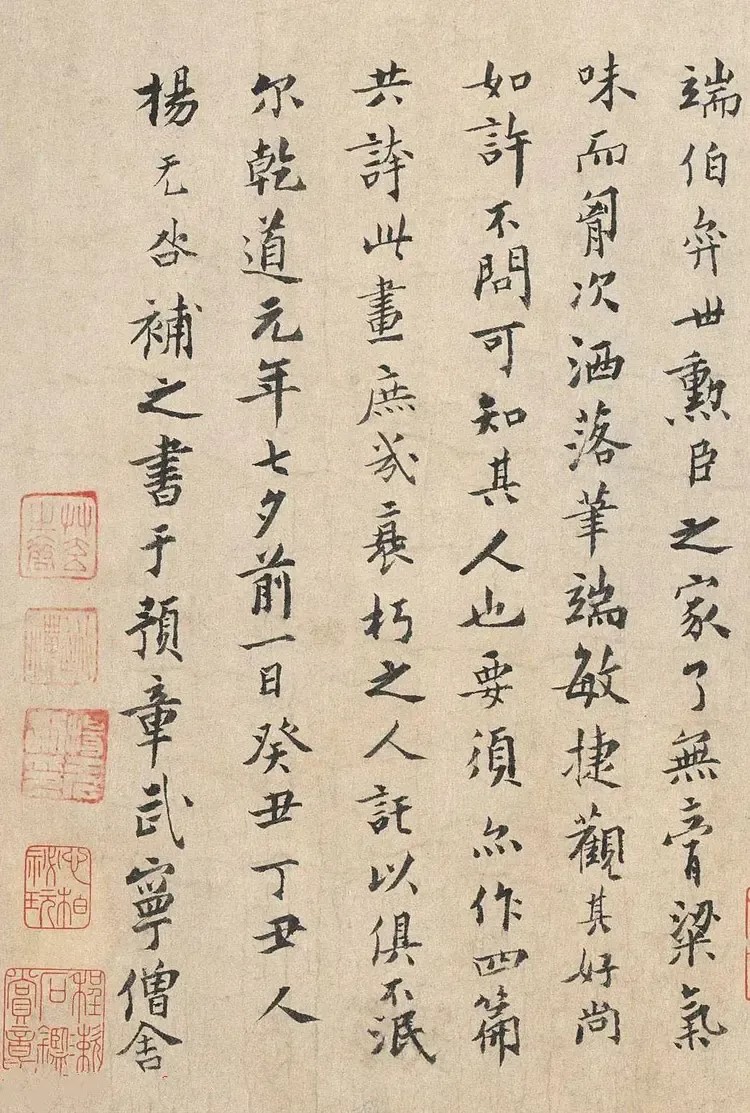 端伯奕世勲臣之家了無膏粱氣
味而胷次洒落筆端敏捷觀其好尚
如許不問可知其人也要須亦作四篇
共誇此畫庶㡬衰朽之人託以俱不泯
尔乾道元年七夕前一日癸丑丁丑人
楊无咎補之書于預章武寧僧舍
程棘石鑑賞章